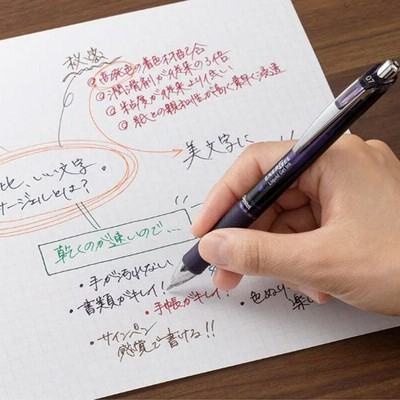 秘密
①高発色の着色材配合
②潤滑剤が従来の3倍
③粘度が従来より低い
④紙との親和性が高く素早く浸透
美文字に
比、いい文字
ナージェルとは?
乾くのが速いので…
・手が汚れない
・書類がキレイ!
・手帳がキレイ!
・色ぬり
楽し
・サインペン
感覚で書ける!!
07
ENERGEL
Liquid Gel Ink
Pentel